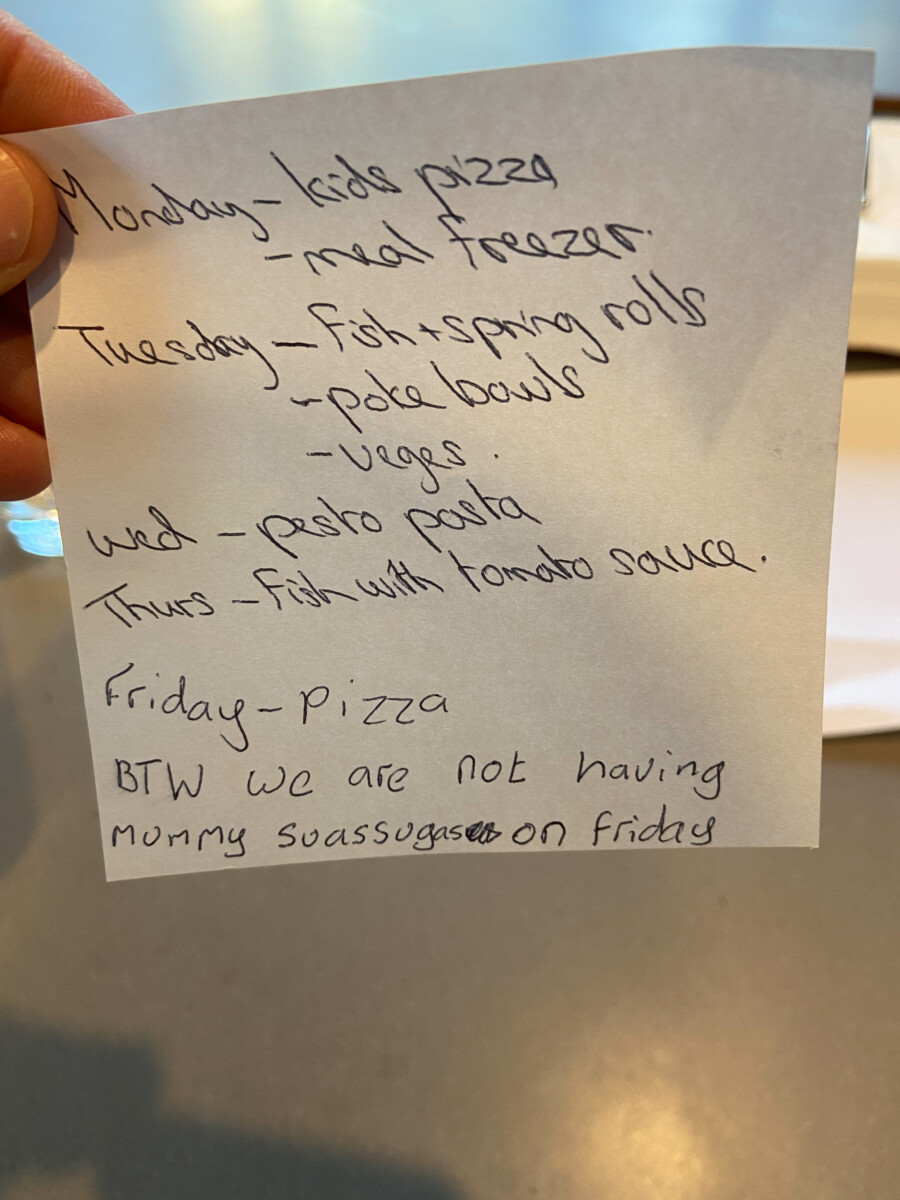 Monday - kids pizza
- meal freezer.
Tuesday - fish + spring rolls
- poke bowls
- veges.
wed - pesto pasta
Thurs - fish with tomato sauce.
Friday - pizza
BTW we are not having
mummy suassugases on friday